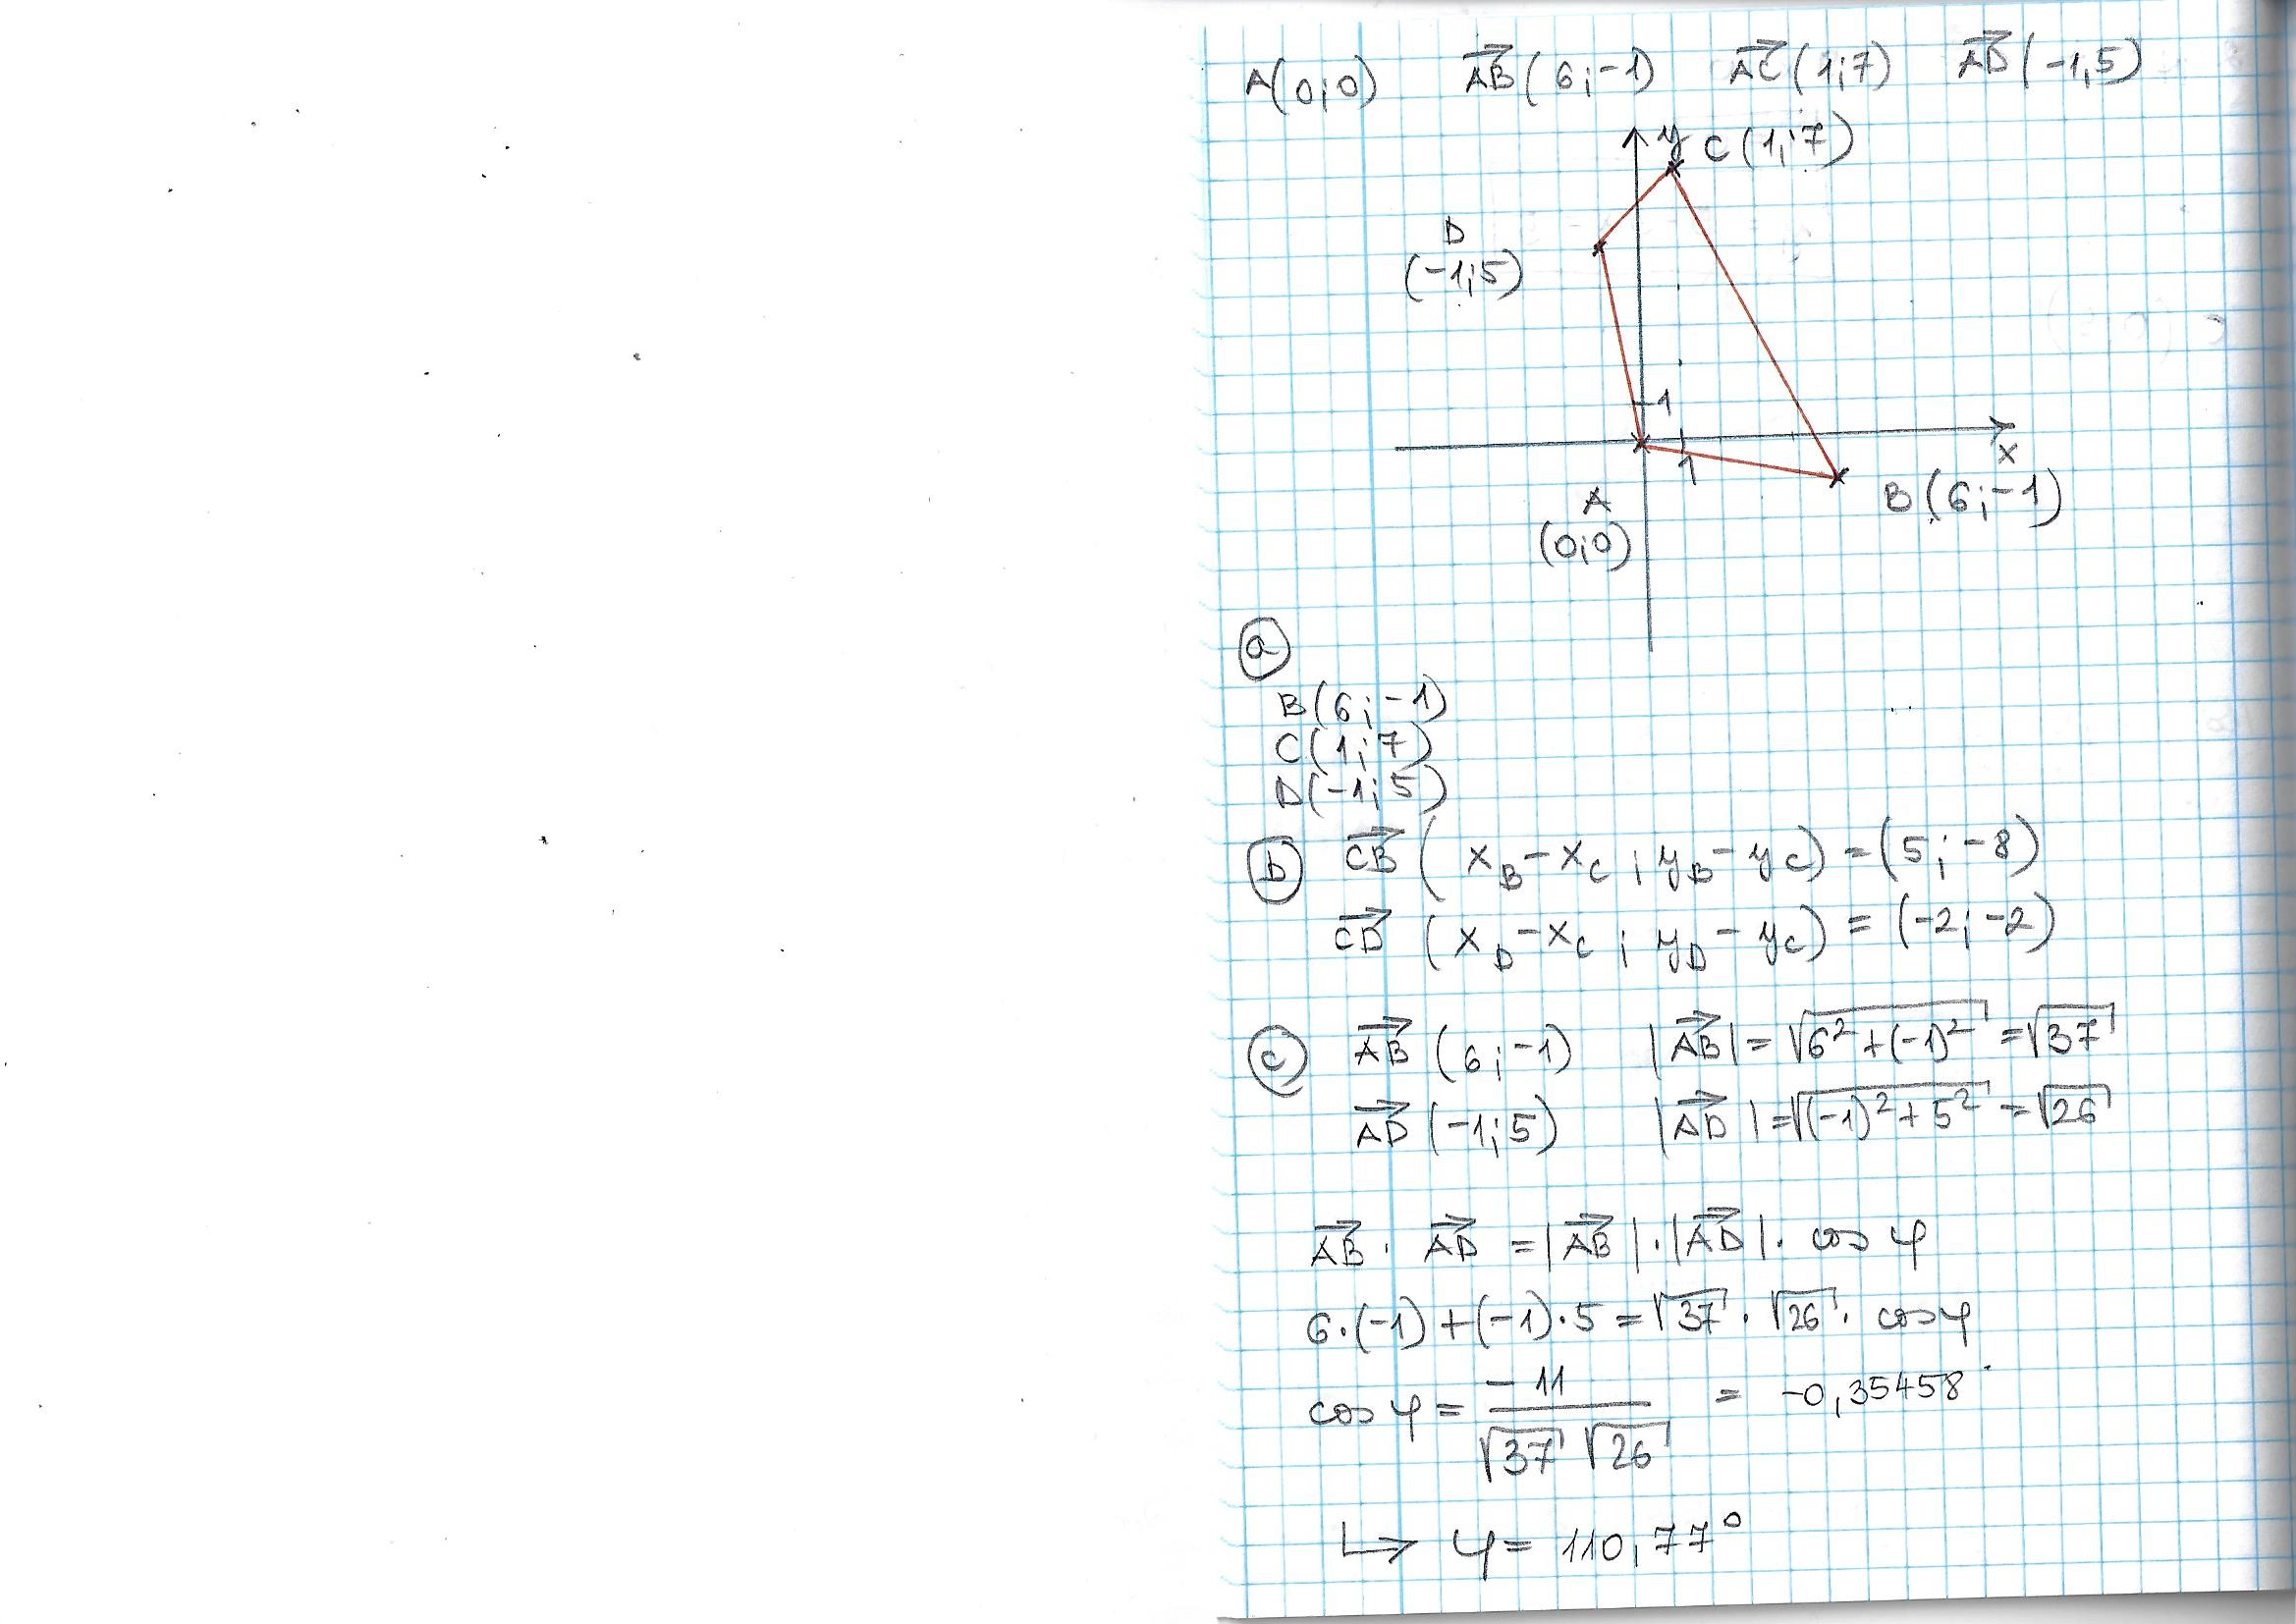 A(0;0) AB(6;-1) AC(1;7) AD(-1,5)
y C(1;7)
D
(-1;5)
1
x
1
A
(0;0)
B(6;-1)
a
B(6;-1)
C(1;7)
D(-1;5)
b CB (x_B-x_C ; y_B-y_C) = (5;-8)
CD (x_D-x_C ; y_D-y_C) = (-2;-2)
c AB (6;-1) |AB| = √6²+(-1)² = √37
AD (-1;5) |AD| = √(-1)²+5² = √26
AB · AD = |AB| · |AD| · cos φ
6·(-1)+(-1)·5 = √37 · √26 · cos φ
cos φ = -11 / √37 √26 = -0,35458
↳ φ = 110,77°